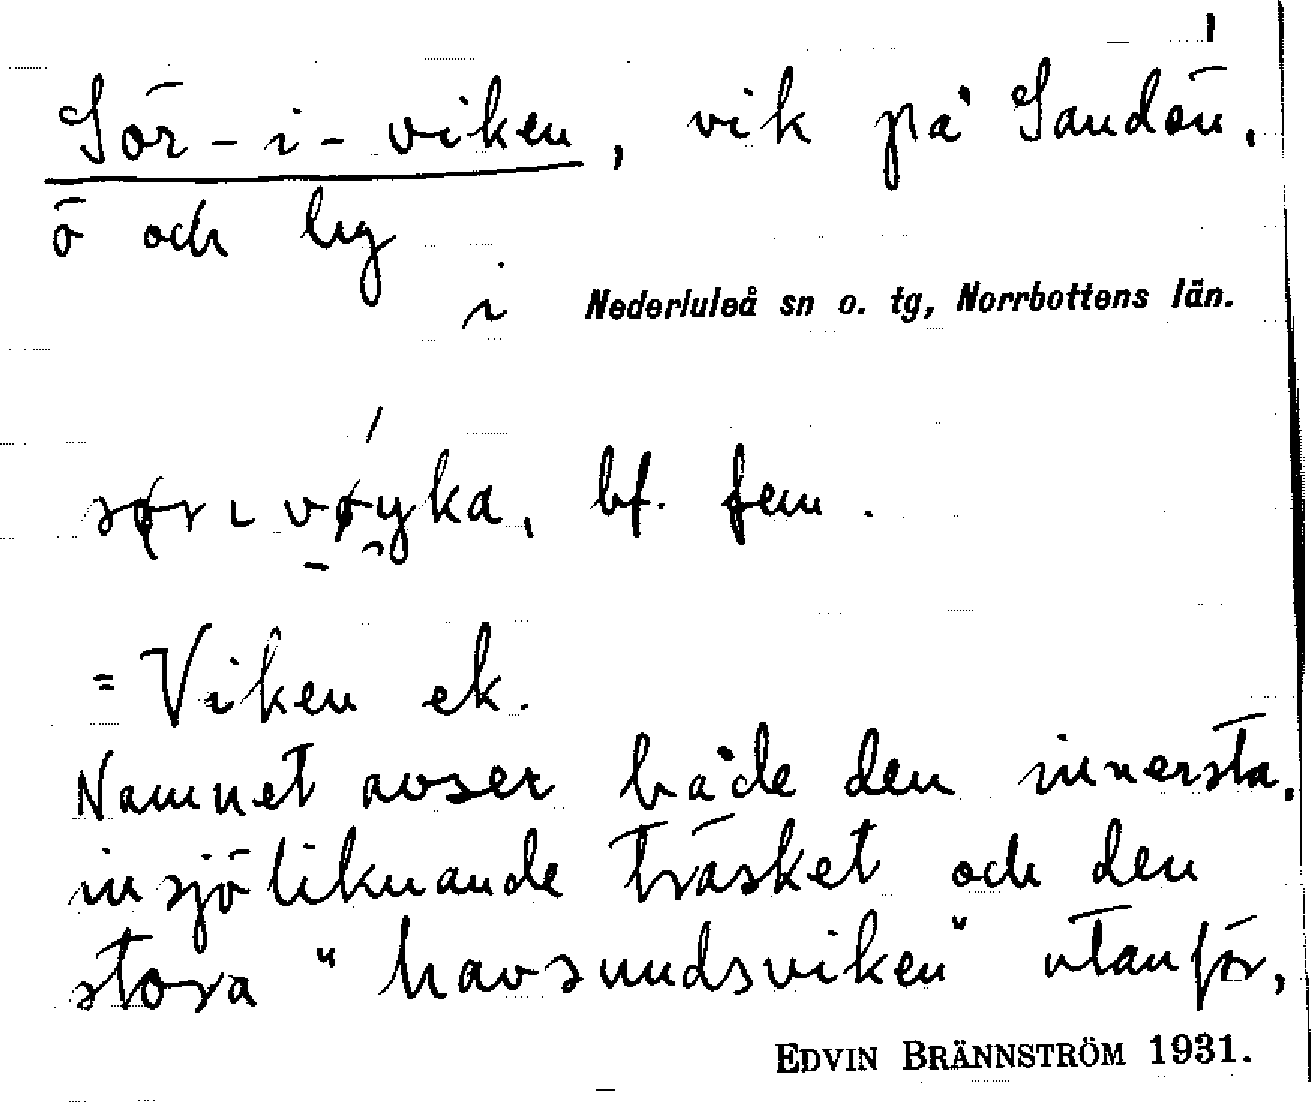 Sör-i-viken, vik på Sandön,
ö och lgg
i Nederluleå sn o. tg, Norrbottens län.
sørɩvøyka, bf. fem.
= Viken ek.
Namnet avser både den innersta,
insjöliknande träsket och den
stora "havsundsviken" utanför,
EDVIN BRÄNNSTRÖM 1931.